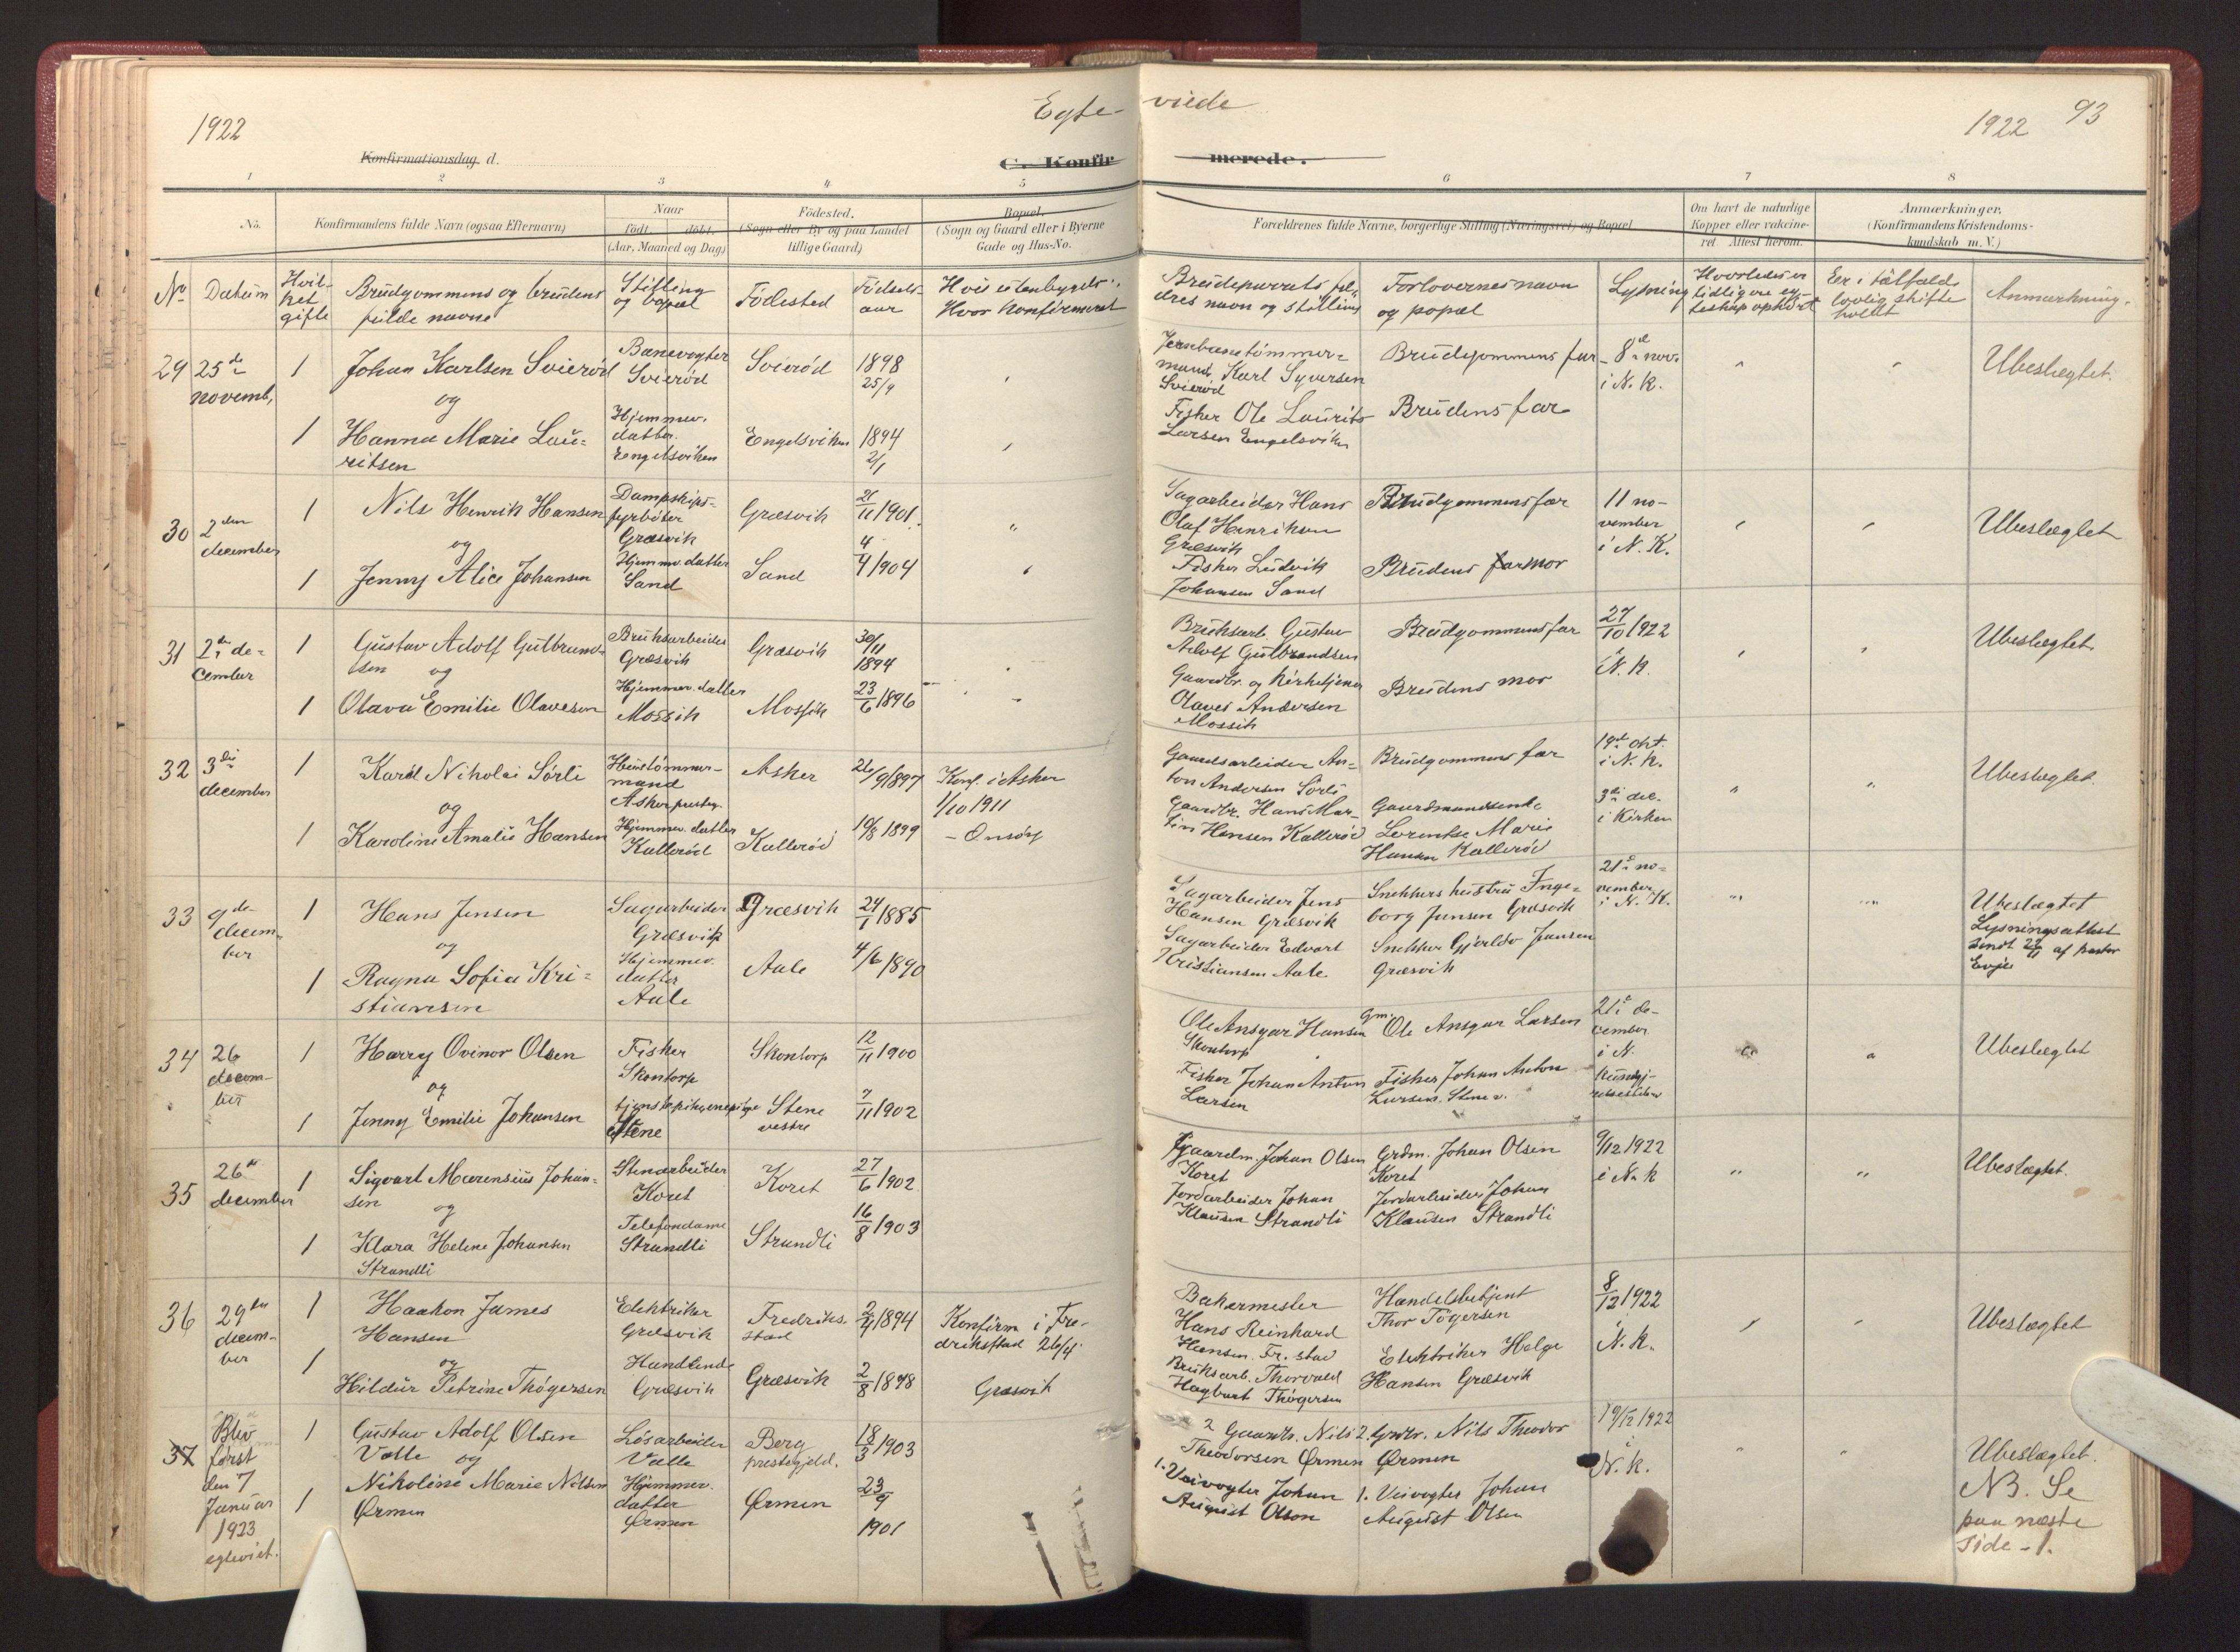 1922
Egte-
viede
1922
93
Konfirmationsdag d.
C. Konfir
merede.
1
2
3
4
5
6
7
8
No.
Konfirmandens fulde Navn (ogsaa Efternavn)
Naar
födt döbt.
(Aar, Maaned og Dag)
Födested.
(Sogn eller By og paa Landet
tillige Gaard)
Bopæl.
(Sogn og Gaard eller i Byerne
Gade og Hus-No.
Forældrenes fulde Navne, borgerlige Stilling (Næringsvei) og Bopæl
Om havt de naturlige
Kopper eller vakcine-
ret. Attest herom.
Anmærkninger.
(Konfirmandens Kristendoms-
kundskab m. V.)
No
Datum
Hvil-
ket
gifte
Brudgommens og brudens
fulde navne
Stilling
og bopæl
Födested
Födsels-
aar
Hvis utenbygds:
Hvor konfirmeret
Brudeparrets fæl-
dres navn og stilling
Forlovernes navn
og bopæl
Lysning
Hvorledes er
tidligere eg-
teskap ophört
Er i tilfælde
lovlig skifte
holdt
Anmærkning.
29
25de
novemb.
1
Johan Karlsen Svieröd
og
Banevogter
Svieröd
Svieröd
1898
25/9
Jernbanetömmer-
mand Karl Syversen
Svieröd
Brudgommens far
8de nov.
i N. K.
Ubeslegtet.
1
Hanna Marie Lau-
ritsen
Hjemmev.
datter
Engelsviken
Engelsviken
1894
2/1
Fisker Ole Laurits
Larsen Engelsviken
Brudens far
30
2den
december
1
Nils Henrik Hansen
og
Dampskips-
fyrböter
Græsvik
Græsvik
21/11 1901
Sagarbeider Hans
Olaf Henriksen
Græsvik
Brudgommens far
11 no-
vember
i N. K.
Ubeslegtet
1
Jenny Alice Johansen
Hjemmev. datter
Sand
Sand
4/4 1904
Fisker Ludvik
Johansen Sand
Brudens farmor
31
2den de-
cember
1
Gustav Adolf Gutbrand-
sen og
Bruksarbeider
Græsvik
Græsvik
30/11
1894
Bruksarb. Gustav
Adolf Gutbrandsen
Brudgommens far
27/10 1922
i N. K.
Ubeslegtet.
1
Olava Emilie Olavesen
Hjemmev. datter
Mossik
Mossik
23/6 1896
Gaardbr. og Kirketjener
Olaves Andersen
Mossik
Brudens mor
32
3die
december
1
Karol Nikolai Sörli
og
Hustömmer-
mand
Asker presteg.
Asker
26/9 1897
Konf. i Asker
1/10 1911
Gaardsarbeider An-
ton Andersen Sörli
Brudgommens far
19de okt.
i N. K.
Ubeslegtet.
1
Karoline Amalie Hansen
Hjemmev. datter
Kalleröd
Kalleröd
10/8 1899
- Onsöy
Gaardbr. Hans Mar-
tin Hansen Kalleröd
Gaardmandsenke
Lorentse Marie
Hansen Kalleröd
3die dec.
i Kirken
33
9de
decem-
ber
1
Hans Jensen
og
Sagarbeider
Græsvik
Græsvik
24/1 1885
Sagarbeider Jens
Hansen Græsvik
Snekkers hustru Inge-
borg Jensen Græsvik
21de no-
vember
i N. K.
Ubeslegtet
Lysningsattest
sendt af pastor
Evje
1
Ragna Sofia Kri-
stiansen
Hjemmev.
datter
Aale
Aale
4/6 1890
Sagarbeider Edvart
Kristiansen Aale.
Snekker Gjerlöv Jensen
Græsvik
34
26
decem-
ber
1
Harry Ovinor Olsen
og
Fisker
Skontorp
Skontorp
12/11 1900
Ole Ansgar Hansen
Skontorp
Gm. Ole Ansgar Larsen
21de de-
cember
i N.
Ubeslegtet
1
Jenny Emilie Johansen
Stene
Stene
vestre
7/11 1902
Fisker Johan Anton
Larsen
Fisker Johan Anton
Larsen. Stene v.
35
26de
december
1
Sigvart Marensius Johan-
sen
og
Stenarbeider
Koret
Koret
27/6 1902
Gaardm. Johan Olsen
Koret
Grdm. Johan Olsen
Koret
9/12 1922
i N. K
Ubeslegtet.
1
Klara Helene Johansen
Strandli
Telefondame
Strandli
Strandli
16/8 1903
Jordarbeider Johan
Klausen Strandli
Jordarbeider Johan
Klausen Strandli
36
29de
decem-
ber
1
Haakon James
Hansen
og
Elektriker
Græsvik
Fredriks-
stad
2/4 1894
Konfirm. i Fre-
drikstad 26/4.
Bakermester
Hans Reinhard
Hansen. Fr. stad
Handelsbetjent
Thor Tögersen
8/12 1922
N. K.
Ubeslegtet
1
Hildur Petrine Thögersen
Handlende
Græsvik
Græsvik
2/8 1898
Græsvik
Bruksarb. Thorvald
Hagbart Thögersen
Elektriker Helge
Hansen Græsvik
37
Blev
först
den 7
Januar
1923
egteviet.
1
Gustav Adolf Olsen
Valle og
Lösarbeider
Valle
Berg
prestegjeld.
18/3 1903
2 Gaardbr. Nils
Theodorsen Ørmen
2. Grdbr. Nils Theodor
Ørmen
19/12 1922
i
N. K.
Ubeslegtet.
NB. Se
paa næste
side - 1.
1
Nikoline Marie Nilsen
Ørmen
Hjemmev.
datter
Ørmen
Ørmen
23/9
1901
1. Veivogter Johan
August Olson
1. Veivogter Johan
August Olsen